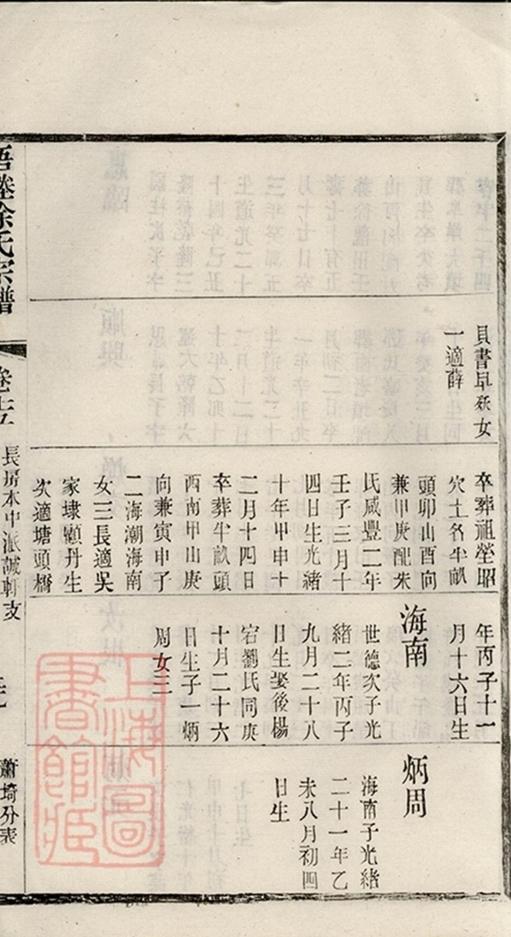 貝書早殀女
一適薛
卒葬祖塋昭
穴土名半畝
頭卯山酉向
兼甲庚配朱
氏咸豐二年
壬子三月十
四日生光緒
十年甲申十
二月十四日
卒葬半畝頭
西南甲山庚
向兼寅申子
二海潮海南
女三長適吳
家埭顧丹生
次適塘頭橋
年丙子十一
月十六日生
海南
世德次子光
緒二年丙子
九月二十八
日生娶後楊
宕劉氏同庚
十月二十六
日生子一炳
周女三
炳周
海南子光緒
二十一年乙
未八月初四
日生
徐氏宗譜
卷
長房本中派誠軒支
蕭埼分表
上海圖書館